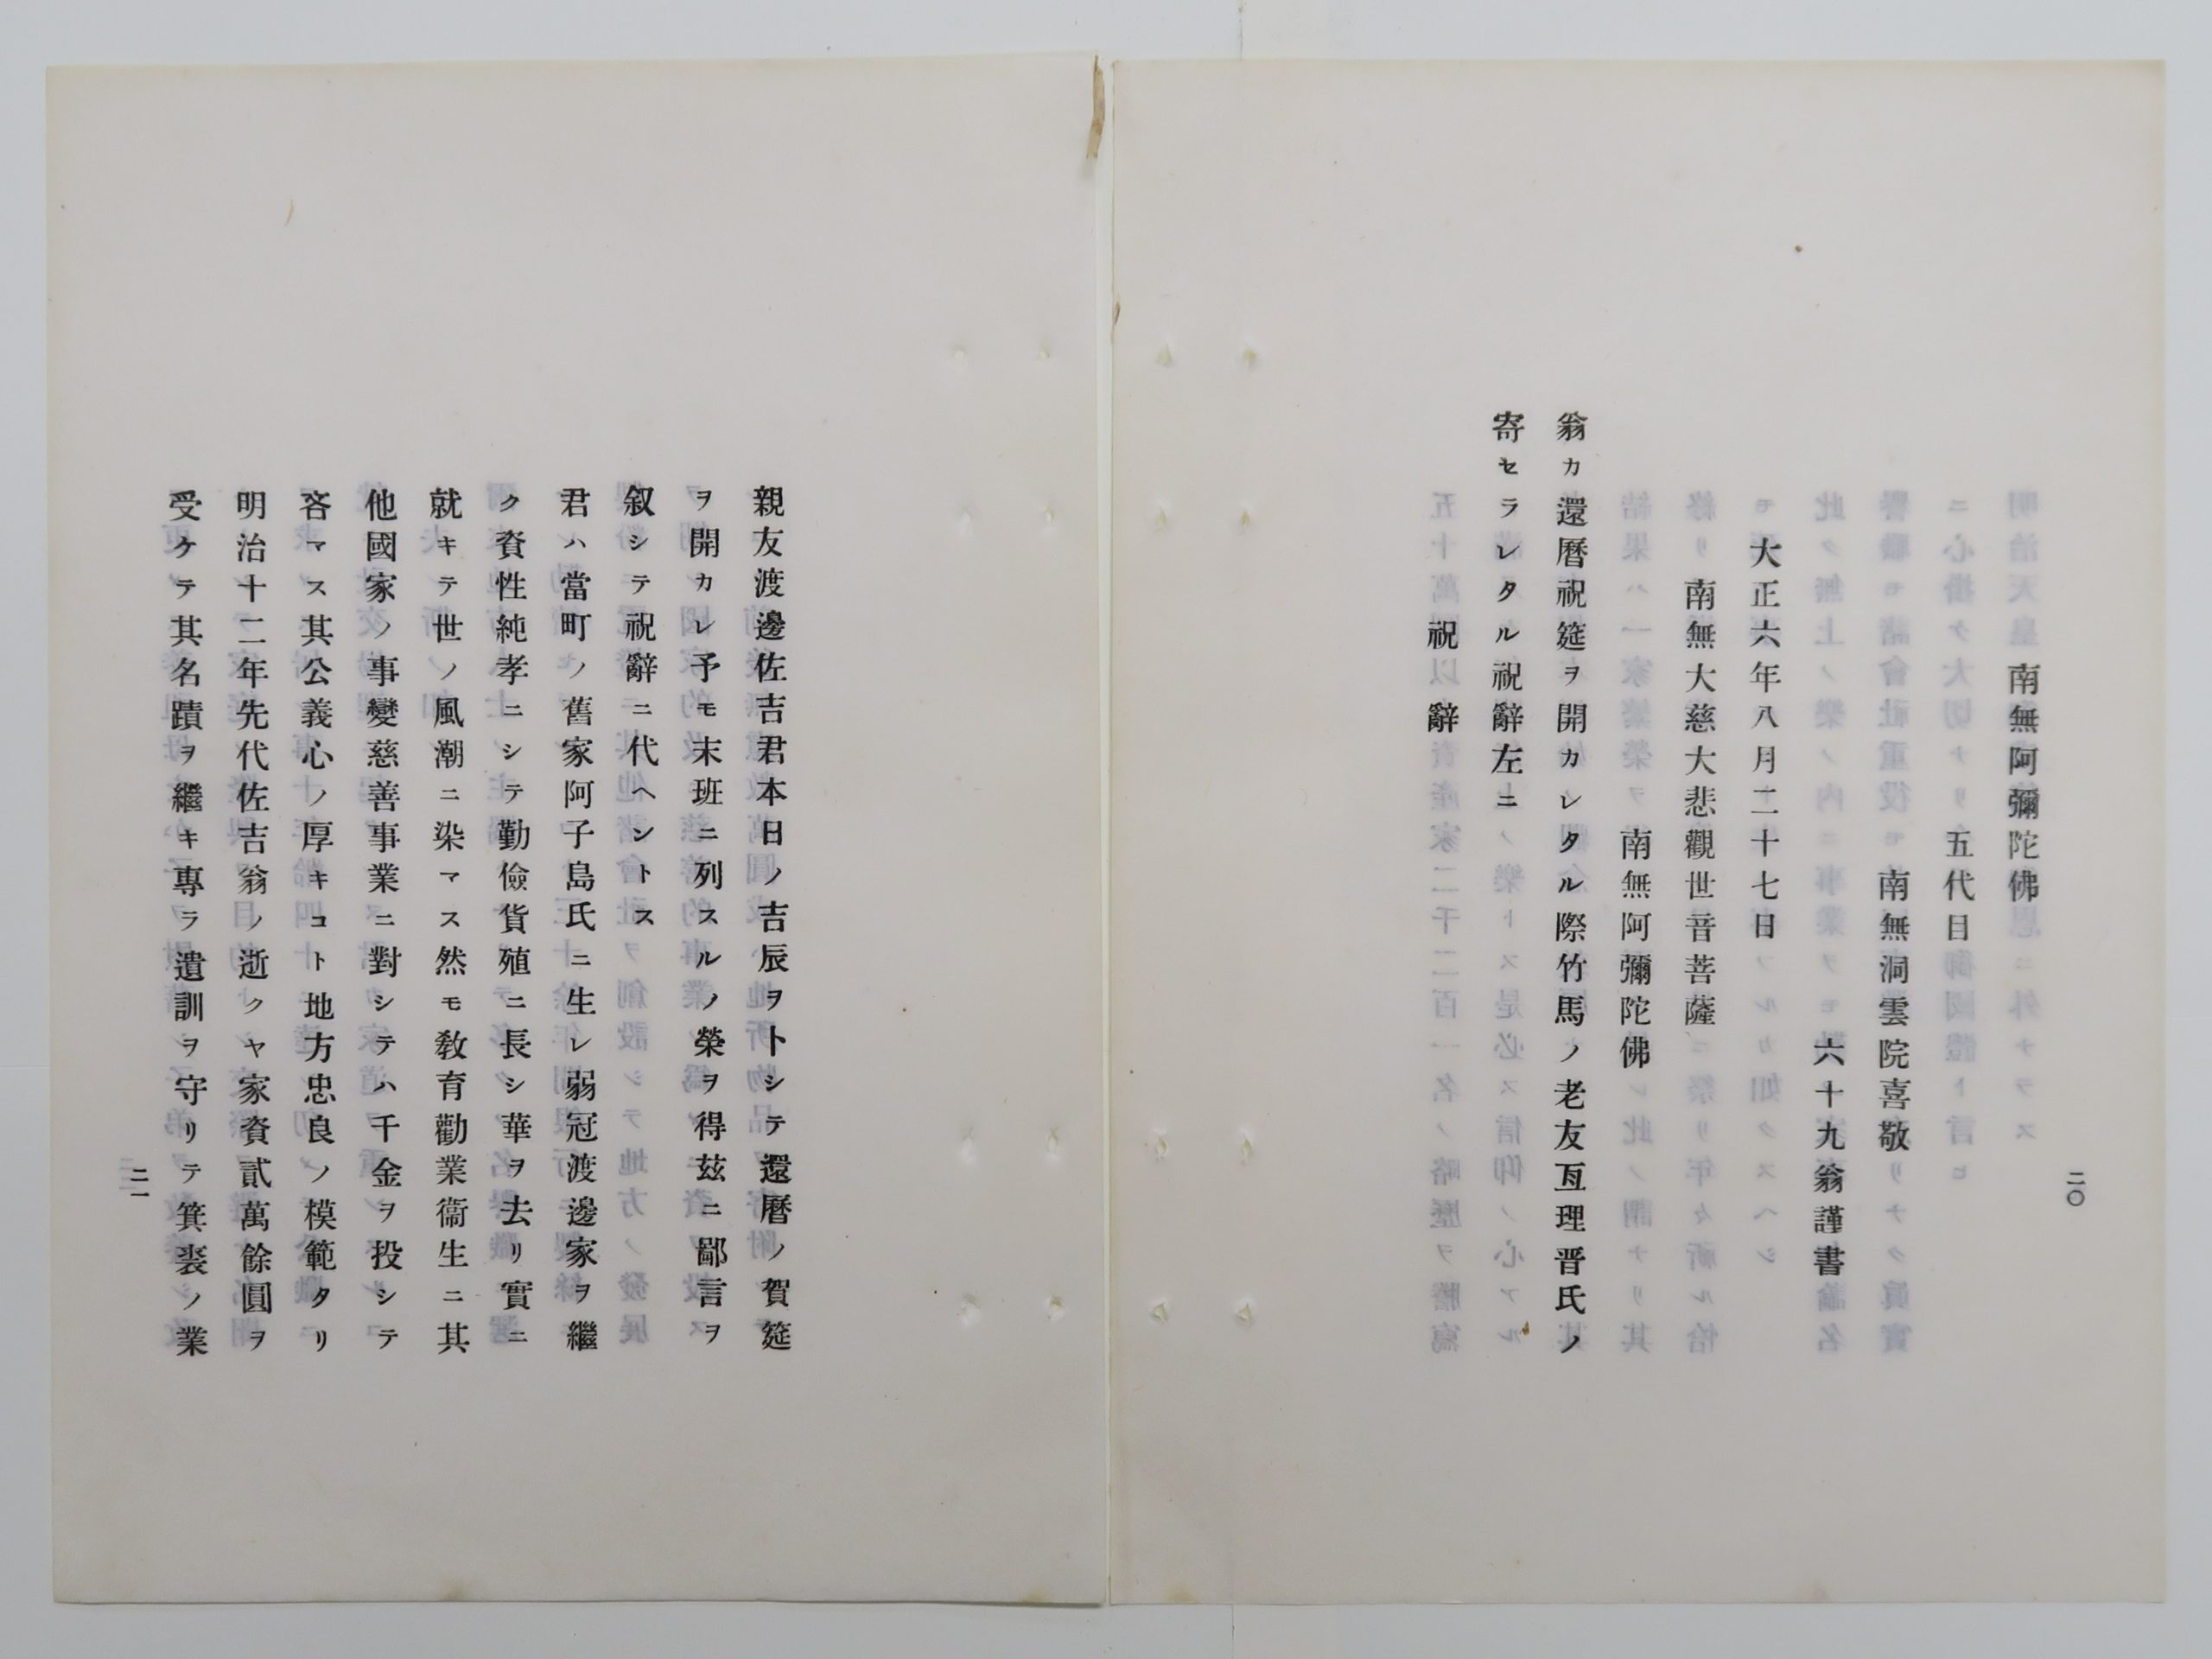 南無阿彌陀佛
五代目
南無洞雲院喜敬
六十九翁謹書
大正六年八月二十七日
南無大慈大悲觀世音菩薩
南無阿彌陀佛
翁カ還曆祝筵ヲ開カレタル際竹馬ノ老友亙理晋氏ノ
寄セラレタル祝辭左ニ
祝辭
二〇
親友渡邊佐吉君本日ノ吉辰ヲトシテ還曆ノ賀筵
ヲ開カレ予モ末班ニ列スルノ榮ヲ得玆ニ鄙言ヲ
叙シテ祝辭ニ代ヘントス
君ハ當町ノ舊家阿子島氏ニ生レ弱冠渡邊家ヲ繼
ク資性純孝ニシテ勤儉貨殖ニ長シ華ヲ去リ實ニ
就キテ世ノ風潮ニ染マス然モ敎育勸業衞生ニ其
他國家ノ事變慈善事業ニ對シテハ千金ヲ投シテ
吝マス其公義心ノ厚キコト地方忠良ノ模範タリ
明治十二年先代佐吉翁ノ逝クヤ家資貳萬餘圓ヲ
受ケテ其名蹟ヲ繼キ專ラ遺訓ヲ守リテ箕裘ノ業
二一